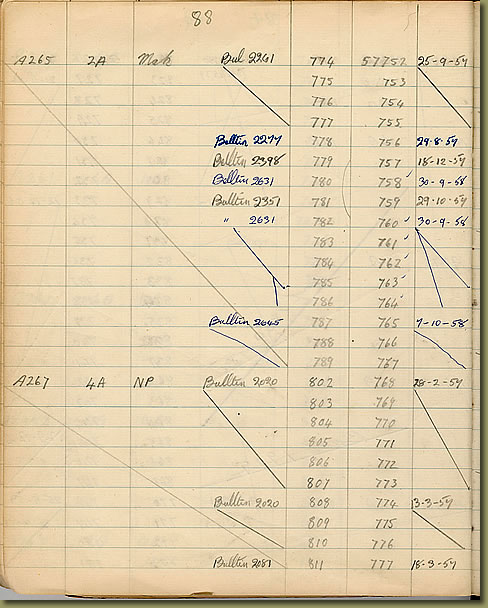 88
A265 2A Msk Bul 2261 774 57752 25-9-57
775 753
776 754
777 755
Bulltin 2277 778 756 29-8-57
Bulltin 2398 779 757 18-12-57
Bulltin 2631 780 758 30-9-58
Bulltin 2351 781 759 29-10-57
" 2631 782 760 30-9-58
783 761
784 762
785 763
786 764
Bulltin 2645 787 765 7-10-58
788 766
789 767
A267 4A NP Bulltin 2020 802 768 28-2-57
803 769
804 770
805 771
806 772
807 773
Bulltin 2020 808 774 3-3-57
809 775
810 776
Bulltin 2051 811 777 18-3-57